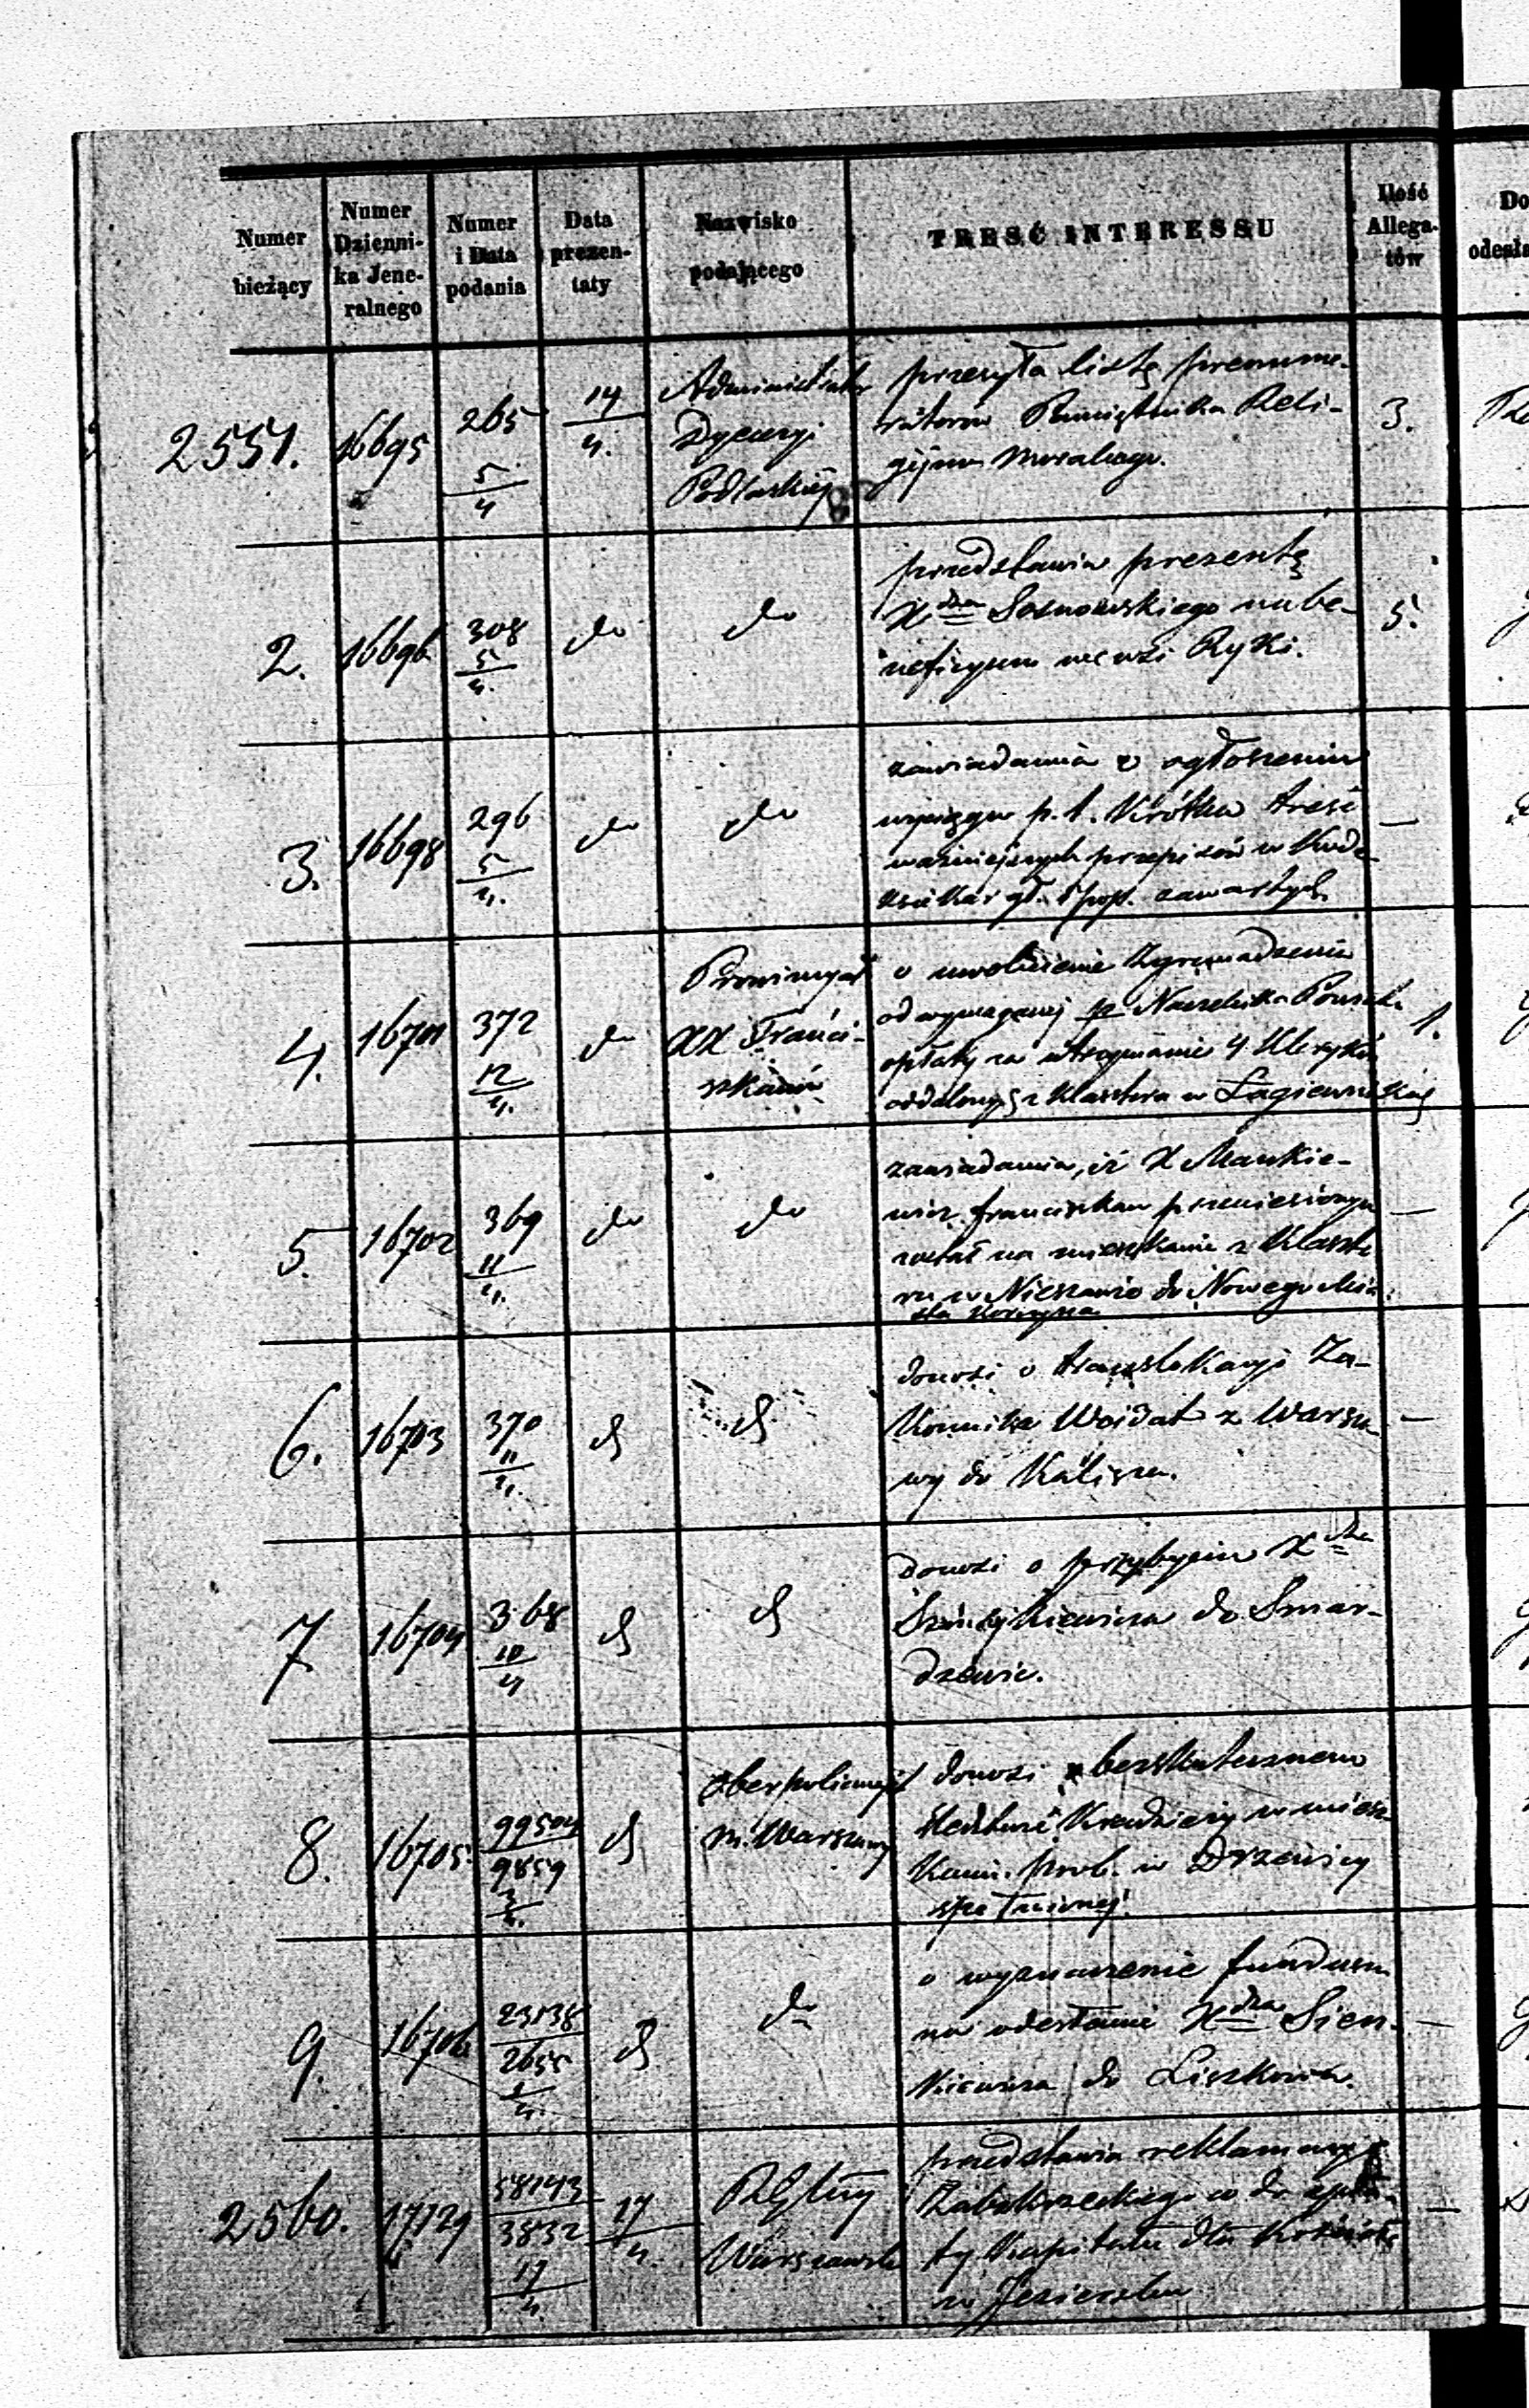 Numer
bieżący
Numer
Dzienni-
ka Jene-
ralnego
Numer
i Data
podania
Data
prezen-
taty
Nazwisko
podającego
TREŚĆ INTERESSU
Ilość
Allega-
tów
Do
odesła
2551.
16695
265
5
4
14
4.
Administrator
Dyecezyi
Podlaskiéj
przesyła listę prenume-
ratorów Pamiętnika Reli-
gijno Moralnego.
3.
2.
16696
308
5
4.
do
do
przedstawia prezentę
Xdza Sosnowskiego na be-
neficyum we wsi Ryki.
5.
3.
16698
296
5
4.
do
do
zawiadamia o ogłoszeniu
p. t. Krótka treść
ważniejszych przepisów w Kode-
ksie Kar gł. i pop. zawartych
—
4.
16701
372
12
4.
do
Prowincyał
XX Franci-
szkanów
o uwolnienie Zgromadzenia
od wymaganej pr Naczelnika Powiatu
opłaty za utrzymanie 4 Kleryków
oddalonych z Klasztoru w Łagiewnikach
1.
5.
16702
369
11
4.
do
do
zawiadamia, iż X Mankie-
wicz franciszkan przeniesionym
został na mieszkanie z Klaszto
ru w Nieszawie do Nowego Mia-
sta Korczyna
—
6.
16703
370
11
4.
do
do
donosi o translokacyi Za-
konnika Wojdat z Warsza-
wy do Kalisza.
—
7
16704
368
10
4
do
do
donosi o przybyciu Xdza
do Smar-
dzewic.
8.
16705.
99504
9859
3
4.
do
Oberpolicmajst
m. Warszawy
donosi o bezskutecznem
śledztwie Kradzieży w miesz-
kaniu prob. w Drzewicy
spełnionej.
9.
16706
23138
2655
4.
do
do
o wyznaczenie funduszu
na odesłanie Xdza Sien-
kiewicza do Liszkowa.
—
2560.
17129
58143
3832
17
4.
17
4.
Warszawski
przedstawia reklamacyę
Zakrzeckiego w do opła-
ty Kapitału dla Kościoła
w Jeziersku
—